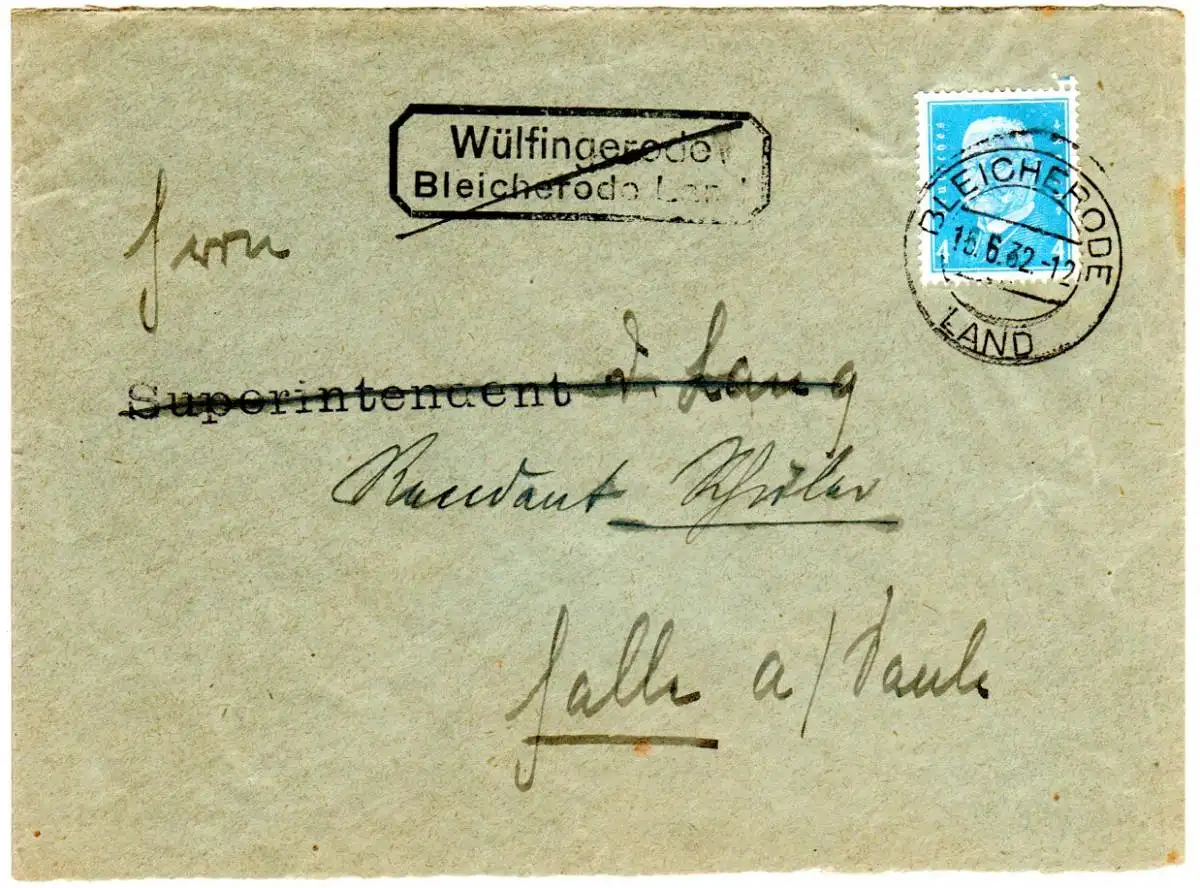 Wülfingerode
Bleicherode Land
Deutsches
4 4
BLEICHERODE
16.6.32.-12
LAND
Herrn
Superintendent D. Lang
Rendant Schüler
Halle a/Saale